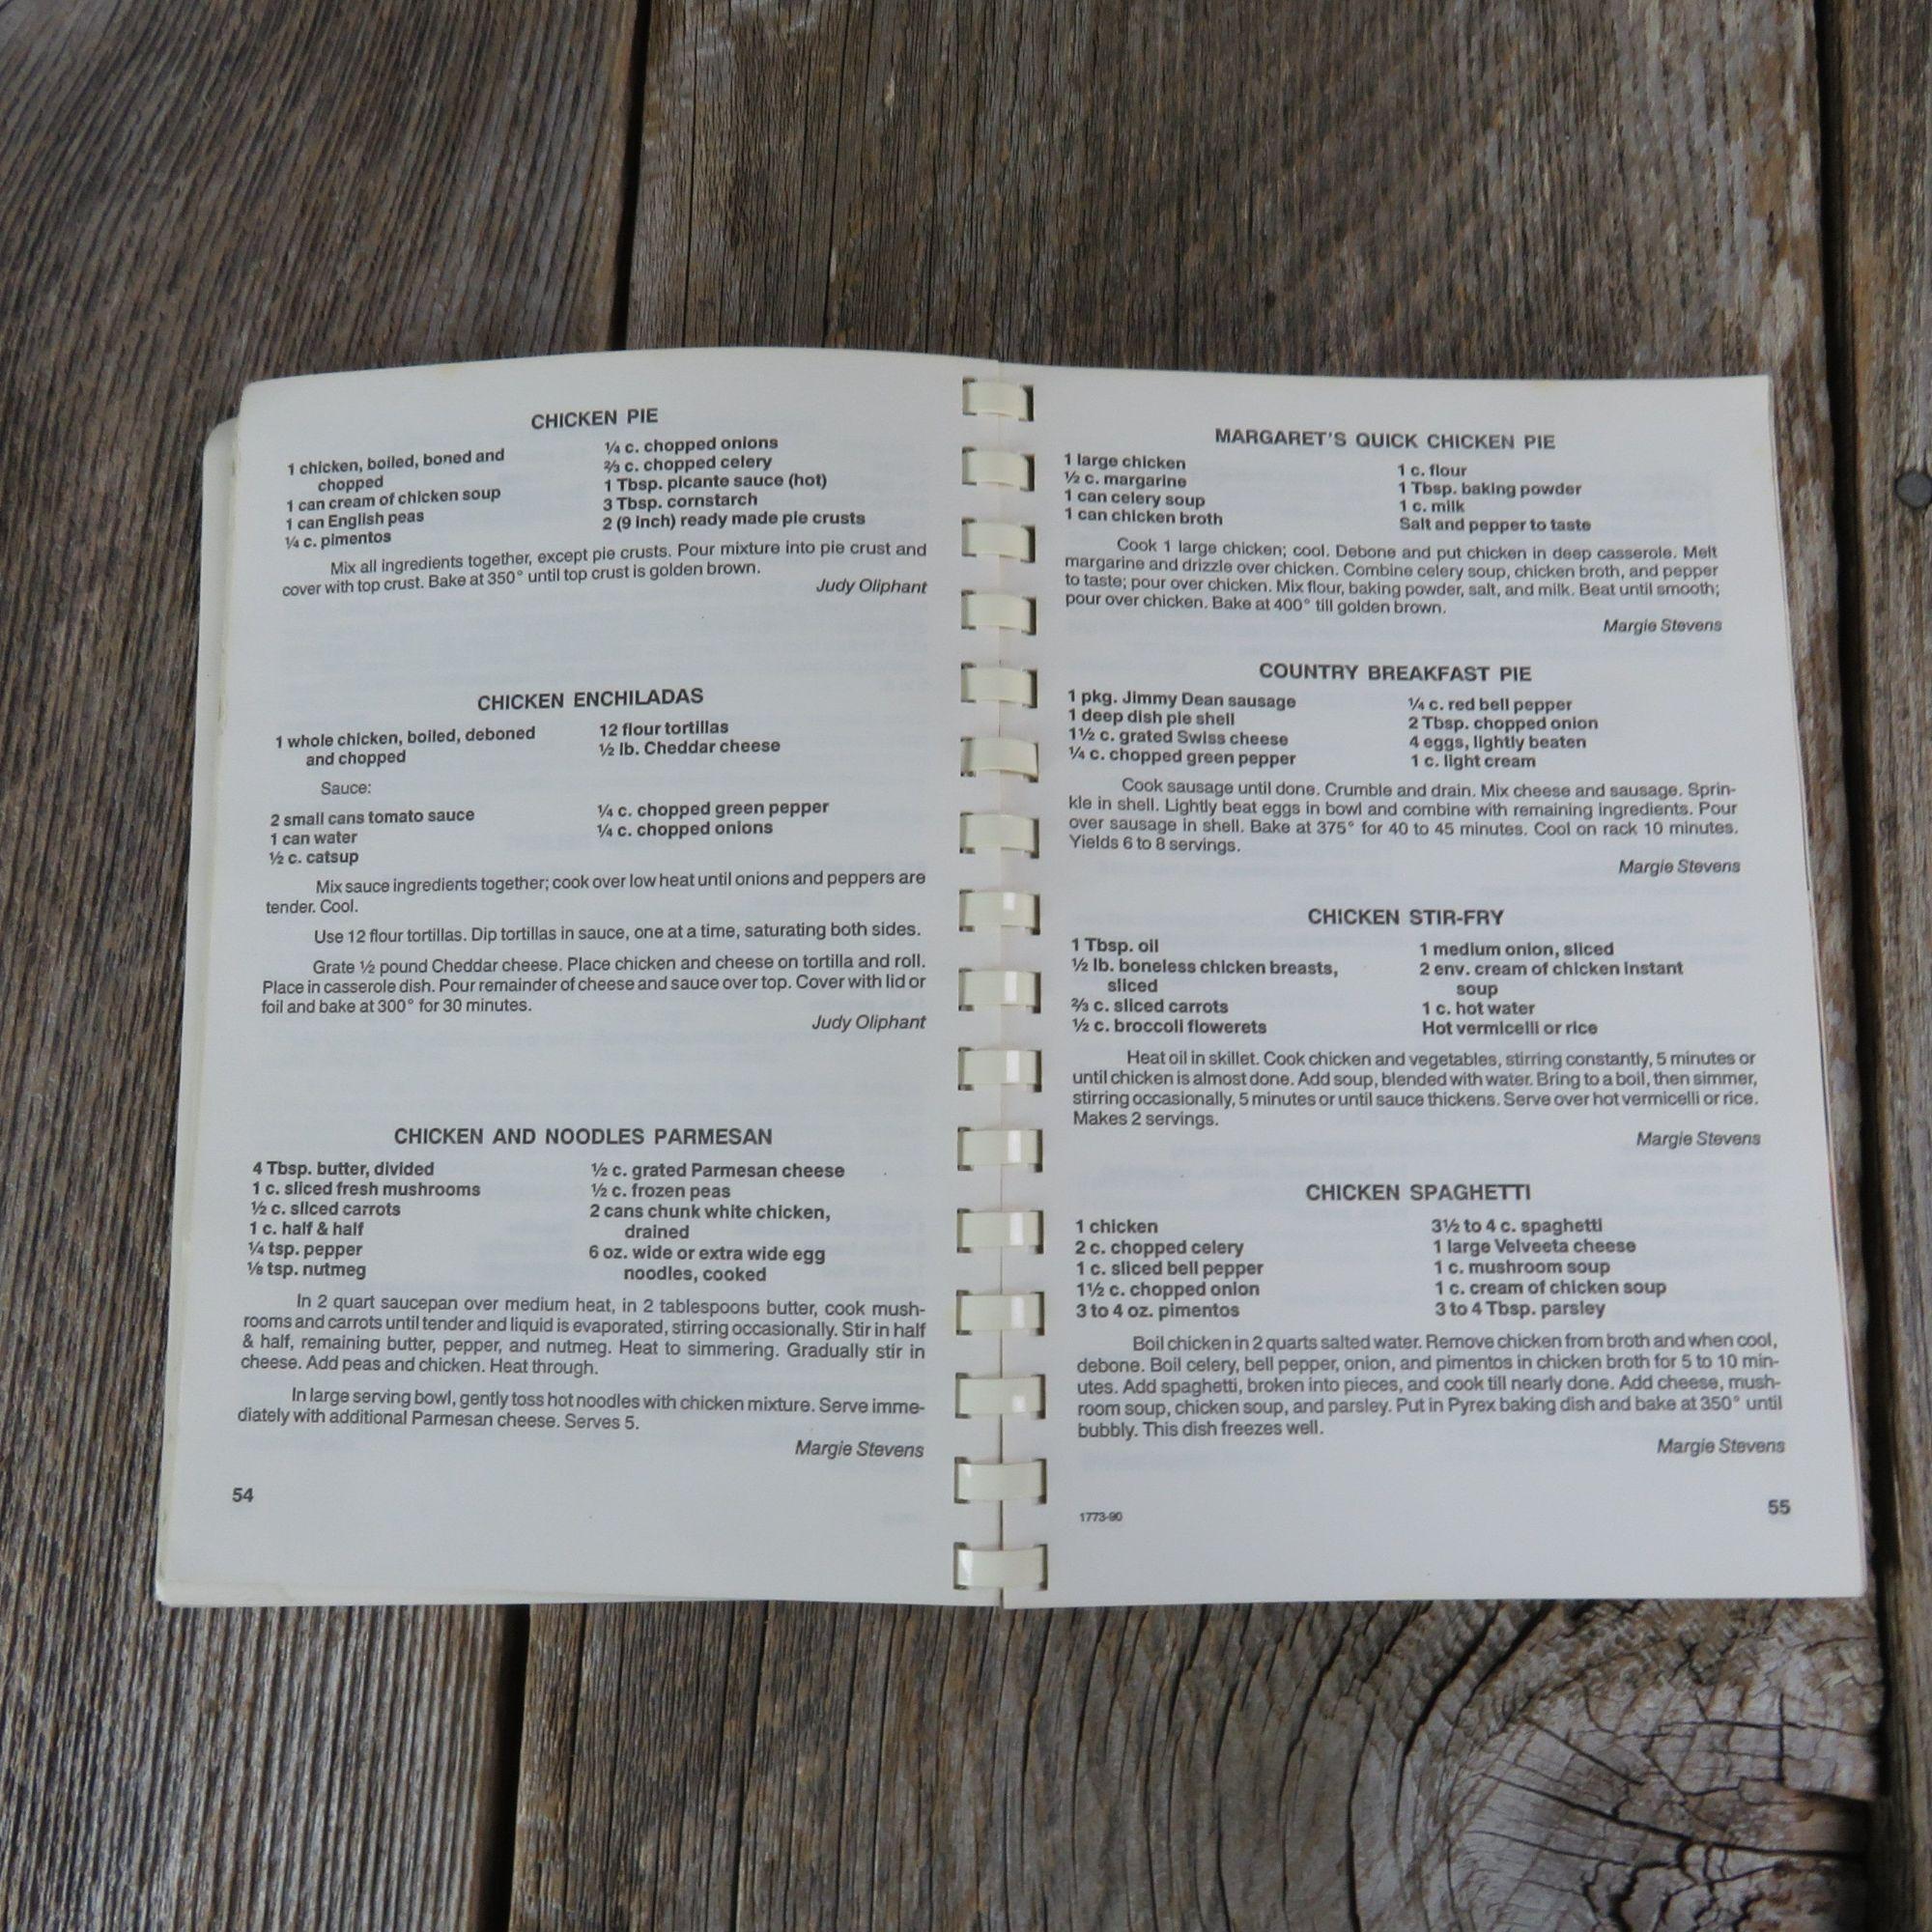 CHICKEN PIE
1 chicken, boiled, boned and
chopped
1 can cream of chicken soup
1 can English peas
¼ c. pimentos
¼ c. chopped onions
⅔ c. chopped celery
1 Tbsp. picante sauce (hot)
3 Tbsp. cornstarch
2 (9 inch) ready made pie crusts
Mix all ingredients together, except pie crusts. Pour mixture into pie crust and
cover with top crust. Bake at 350° until top crust is golden brown.
Judy Oliphant
CHICKEN ENCHILADAS
1 whole chicken, boiled, deboned
and chopped
12 flour tortillas
½ lb. Cheddar cheese
Sauce:
2 small cans tomato sauce
1 can water
½ c. catsup
¼ c. chopped green pepper
¼ c. chopped onions
Mix sauce ingredients together; cook over low heat until onions and peppers are
tender. Cool.
Use 12 flour tortillas. Dip tortillas in sauce, one at a time, saturating both sides.
Grate ½ pound Cheddar cheese. Place chicken and cheese on tortilla and roll.
Place in casserole dish. Pour remainder of cheese and sauce over top. Cover with lid or
foil and bake at 300° for 30 minutes.
Judy Oliphant
CHICKEN AND NOODLES PARMESAN
4 Tbsp. butter, divided
1 c. sliced fresh mushrooms
½ c. sliced carrots
1 c. half & half
¼ tsp. pepper
⅛ tsp. nutmeg
½ c. grated Parmesan cheese
½ c. frozen peas
2 cans chunk white chicken,
drained
6 oz. wide or extra wide egg
noodles, cooked
In 2 quart saucepan over medium heat, in 2 tablespoons butter, cook mush-
rooms and carrots until tender and liquid is evaporated, stirring occasionally. Stir in half
& half, remaining butter, pepper, and nutmeg. Heat to simmering. Gradually stir in
cheese. Add peas and chicken. Heat through.
In large serving bowl, gently toss hot noodles with chicken mixture. Serve imme-
diately with additional Parmesan cheese. Serves 5.
Margie Stevens
54
MARGARET'S QUICK CHICKEN PIE
1 large chicken
½ c. margarine
1 can celery soup
1 can chicken broth
1 c. flour
1 Tbsp. baking powder
1 c. milk
Salt and pepper to taste
Cook 1 large chicken; cool. Debone and put chicken in deep casserole. Melt
margarine and drizzle over chicken. Combine celery soup, chicken broth, and pepper
to taste; pour over chicken. Mix flour, baking powder, salt, and milk. Beat until smooth;
pour over chicken. Bake at 400° till golden brown.
Margie Stevens
COUNTRY BREAKFAST PIE
1 pkg. Jimmy Dean sausage
1 deep dish pie shell
1½ c. grated Swiss cheese
¼ c. chopped green pepper
¼ c. red bell pepper
2 Tbsp. chopped onion
4 eggs, lightly beaten
1 c. light cream
Cook sausage until done. Crumble and drain. Mix cheese and sausage. Sprin-
kle in shell. Lightly beat eggs in bowl and combine with remaining ingredients. Pour
over sausage in shell. Bake at 375° for 40 to 45 minutes. Cool on rack 10 minutes.
Yields 6 to 8 servings.
Margie Stevens
CHICKEN STIR-FRY
1 Tbsp. oil
½ lb. boneless chicken breasts,
sliced
⅔ c. sliced carrots
½ c. broccoli flowerets
1 medium onion, sliced
2 env. cream of chicken instant
soup
1 c. hot water
Hot vermicelli or rice
Heat oil in skillet. Cook chicken and vegetables, stirring constantly, 5 minutes or
until chicken is almost done. Add soup, blended with water. Bring to a boil, then simmer,
stirring occasionally, 5 minutes or until sauce thickens. Serve over hot vermicelli or rice.
Makes 2 servings.
Margie Stevens
CHICKEN SPAGHETTI
1 chicken
2 c. chopped celery
1 c. sliced bell pepper
1½ c. chopped onion
3 to 4 oz. pimentos
3½ to 4 c. spaghetti
1 large Velveeta cheese
1 c. mushroom soup
1 c. cream of chicken soup
3 to 4 Tbsp. parsley
Boil chicken in 2 quarts salted water. Remove chicken from broth and when cool,
debone. Boil celery, bell pepper, onion, and pimentos in chicken broth for 5 to 10 min-
utes. Add spaghetti, broken into pieces, and cook till nearly done. Add cheese, mush-
room soup, chicken soup, and parsley. Put in Pyrex baking dish and bake at 350° until
bubbly. This dish freezes well.
Margie Stevens
1773-90
55